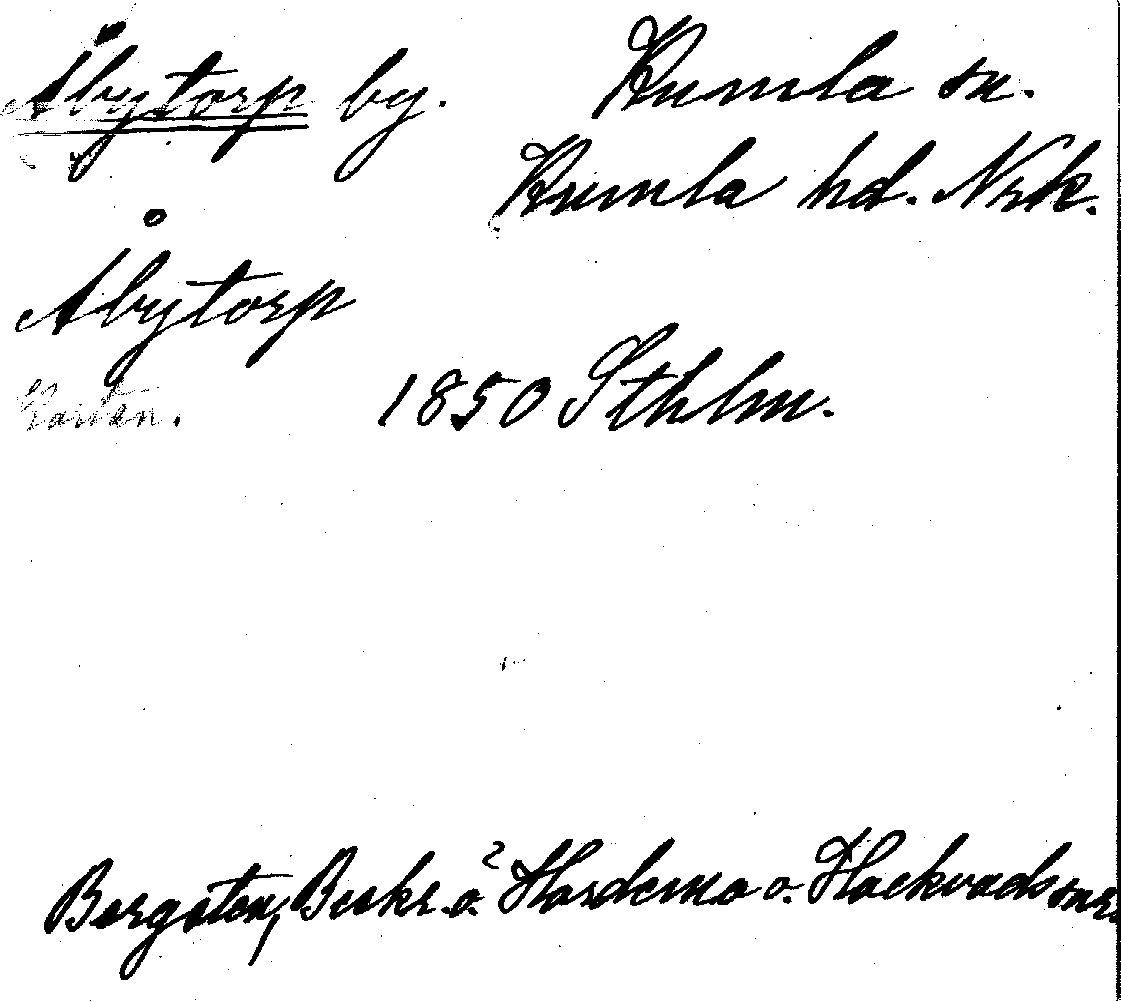 Åbytorp by. Kumla sn.
Kumla hd. Nrk.
Åbytorp
Kartan. 1850 Sthlm.
Bergsten, Beskr. ö. Hardemo o. Hackvads snr.